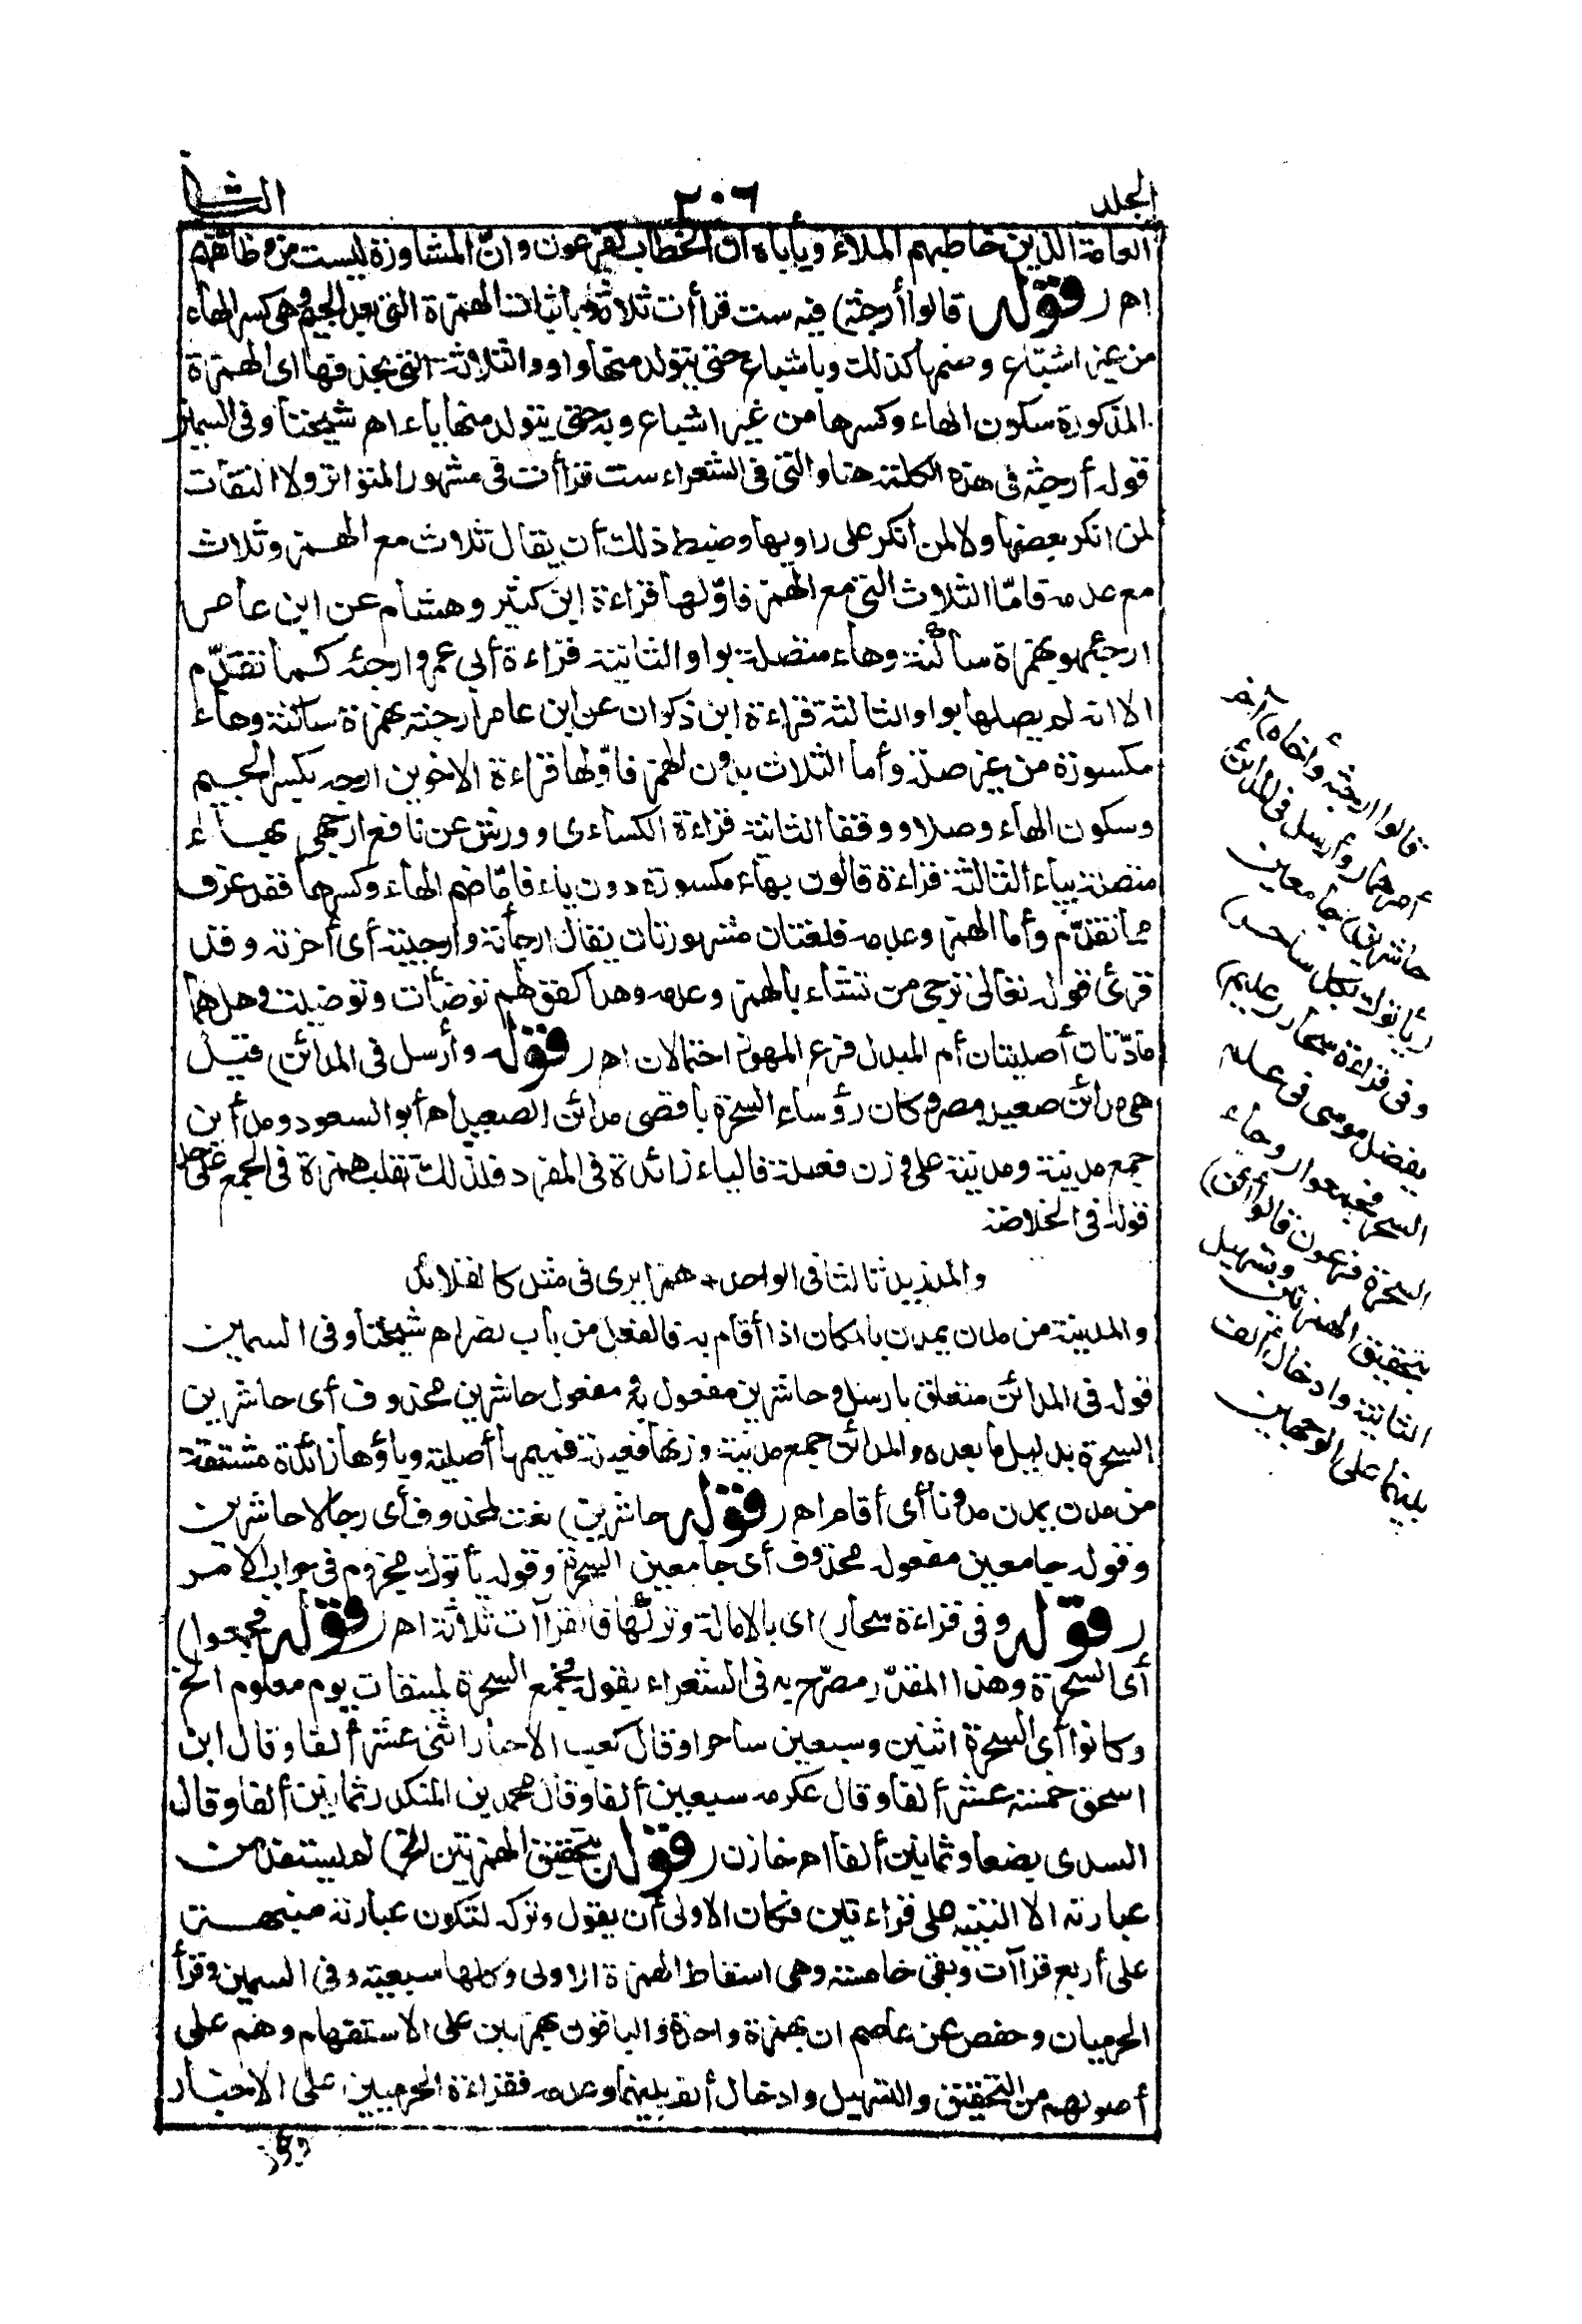 الجلد ٢٠٦ الثانى
العامة الذين خاطبهم الملاء ويأباه ان الخطاب لفرعون وانّ المشاورة ليست من وظائفهم
اھ ر قوله قالوا أرجئه) فيه ست قرأأت ثلاثة باثبات الهمزة التى بعد الجيم وهى كسر الهاء
من غير اشباع وضمها كذلك وباشباع حتى يتولد منها واو والثلاثة التى بحذفها اى الهمزة
المذكورة سكون الهاء وكسرها من غير اشباع وبه حتى يتولد منها ياء اھ شيخنا وفى السمين
قوله أرجئه فى هذه الكلمة هنا والتى فى الشعراء ست قراأت فى مشهور المتواتر ولا التفات
لمن انكر بعضها ولا لمن أنكر على راويها وضبط ذلك أن يقال ثلاث مع الهمز وثلاث
مع عدمه فامّا الثلاث التى مع الهمز فاوّلها قراءة ابن كثير وهشام عن ابن عامر
ارجئهو بهمزة ساكنة وهاء متصلة بواو والثانية قراءة أبى عمرو ارجئه كما تقدّم
الا انه لم يصلها بواو والثالثة قراءة ابن ذكوان عن ابن عامر ارجئه بهمزة ساكنة وهاء
مكسورة من غير صلة وأما الثلاث بدون الهمز فاوّلها قراءة الاخوين ارجه بكسر الجيم
وسكون الهاء وصلا ووقفا الثانية قراءة الكساءى وورش عن نافع ارجهى بهاء
متصلة بياء الثالثة قراءة قالون بهاء مكسورة دون ياء فامّا ضم الهاء وكسرها فقد عرف
مما تقدّم وأما الهمز وعدمه فلغتان مشهورتان يقال ارجأته وأرجيته أى أخرته وقد
قرئ قوله تعالى ترجى من تشاء بالهمز وعدمه وهذا كقولهم توضأت وتوضيت وهل هما
مادّتان أصليتان أم المبدل فرع المهموز احتمالان اھ ر قوله وأرسل فى المدائن) قيل
هى مدائن صعيد مصر وكان رؤساء السحرة باقصى مدائن الصعيد اھ أبو السعود ومدأين
جمع مدينة ومدينة على وزن فعيلة فالياء زائدة فى المفرد فلذلك تقلب همزة فى الجمع على حد
قوله فى الخلاصة
والمد زيد ثالثا فى الواحد + همزا يرى فى مثل كالقلائد
والمدينة من مدن يمدن بالمكان اذا أقام به فالفعل من باب نصر اھ شيخنا وفى السمين
قوله فى المدائن متعلق بارسل وحاشرين مفعول به ومفعول حاشرين محذوف أى حاشرين
السحرة بدليل ما بعده والمدائن جمع مدينة وزنها فعيلة فميمها أصلية وياؤها زائدة مشتقة
من مدن يمدن مدونا أى أقام اھ ر قوله حاشرين) نعت لمحذوف أى رجالا حاشرين
وقوله جامعين مفعوله محذوف أى جامعين السحرة وقوله يأتوك مجزوم فى جواب الامر
ر قوله وفى قراءة سحار) اى بالامالة وتركها فالقراآت ثلاثة اھ ر قوله فجمعوا)
أى السحرة وهذا المقدّر مصرّح به فى الشعراء بقوله فجمع السحرة لميقات يوم معلوم الخ
وكانوا أى السحرة اثنين وسبعين ساحرا وقال كعب الاحبار اثنى عشر ألفا وقال ابن
اسحق خمسة عشر ألفا وقال عكرمه سبعين ألفا وقال محمد بن المنكدر ثمانين ألفا وقال
السدى بضعا وثمانين ألفا اھ خازن ر قوله بتحقيق الهمزتين الخ) لم يستفد من
عبارته الا التنبيه على قراءتين فكان الاولى أن يقول وتركه لتكون عبارته منبهة
على أربع قراآت وبقى خامسة وهى اسقاط الهمزة الاولى وكلها سبعية وفى السمين وقرأ
الحرميان وحفص عن عاصم ان بهمزة واحدة والباقون بهمزتين على الاستفهام وهم على
أصولهم من التحقيق والتسهيل وادخال ألف بينهما وعدمه فقراءة الحرميين على الاخبار
قالوا ارجئه وأخاه) أخر
أمرهما روأرسل فى المدائن
حاشرين) جامعين
ريأتوك بكل ساحر)
وفى قراءة سحار رعليم)
يفضل موسى فى علم
السحر فجمعوا ر وجاء
السحرة فرعون قالوا أئن)
بتحقيق الهمزتين وتسهيل
الثانية وادخال ألف
بينهما على الوجهين